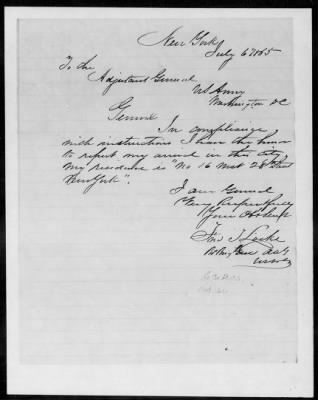 New York
July 6 1865
To the
Adjutant General
US Army
Washington DC
General
In compliance
with instructions I have the honor
to report my arrival in this city,
my residence is "No 16 West 28th Street
New York".
I am General
Very Respectfully
Your Obt Servt